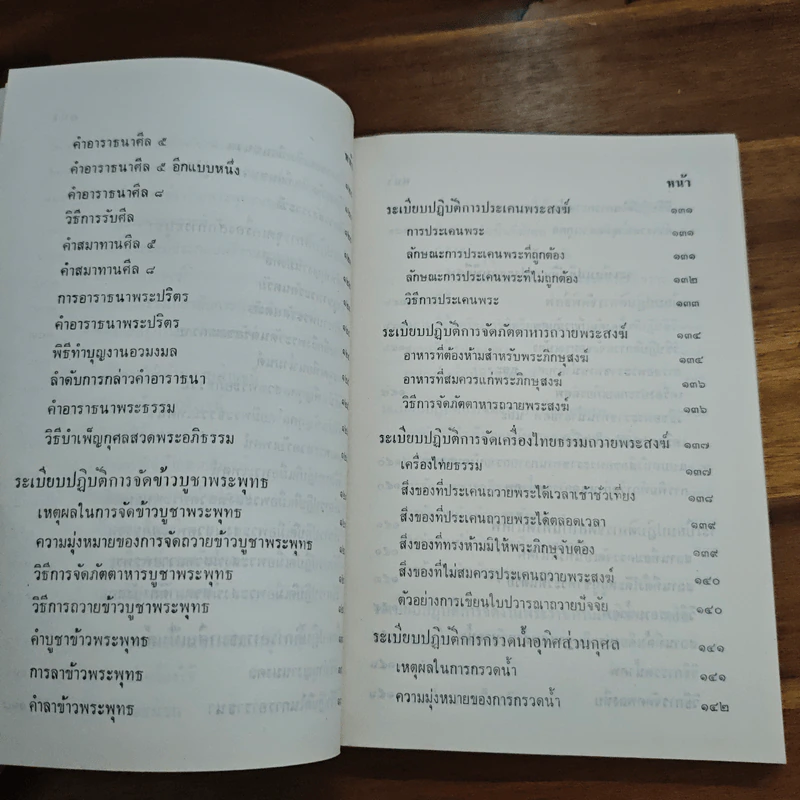 คำอาราธนาศีล ๕
คำอาราธนาศีล ๕ อีกแบบหนึ่ง
คำอาราธนาศีล ๘
วิธีการรับศีล
คำสมาทานศีล ๕
คำสมาทานศีล ๘
การอาราธนาพระปริตร
คำอาราธนาพระปริตร
พิธีทำบุญงานอวมงมล
ลำดับการกล่าวคำอาราธนา
คำอาราธนาพระธรรม
วิธีบำเพ็ญกุศลสวดพระอภิธรรม
ระเบียบปฏิบัติการจัดข้าวบูชาพระพุทธ
เหตุผลในการจัดข้าวบูชาพระพุทธ
ความมุ่งหมายของการจัดถวายข้าวบูชาพระพุทธ
วิธีการจัดภัตตาหารบูชาพระพุทธ
วิธีการถวายข้าวบูชาพระพุทธ
คำบูชาข้าวพระพุทธ
การลาข้าวพระพุทธ
คำลาข้าวพระพุทธ
หน้า
ระเบียบปฏิบัติการประเคนพระสงฆ์ ๑๓๑
การประเคนพระ ๑๓๑
ลักษณะการประเคนพระที่ถูกต้อง ๑๓๑
ลักษณะการประเคนพระที่ไม่ถูกต้อง ๑๓๒
วิธีการประเคนพระ ๑๓๓
ระเบียบปฏิบัติการจัดภัตตาหารถวายพระสงฆ์ ๑๓๔
อาหารที่ต้องห้ามสำหรับพระภิกษุสงฆ์ ๑๓๔
อาหารที่สมควรแก่พระภิกษุสงฆ์ ๑๓๖
วิธีการจัดภัตตาหารถวายพระสงฆ์ ๑๓๖
ระเบียบปฏิบัติการจัดเครื่องไทยธรรมถวายพระสงฆ์ ๑๓๗
เครื่องไทยธรรม ๑๓๗
สิ่งของที่ประเคนถวายพระได้เวลาเช้าชั่วเที่ยง ๑๓๘
สิ่งของที่ประเคนถวายพระได้ตลอดเวลา ๑๓๙
สิ่งของที่ทรงห้ามมิให้พระภิกษุจับต้อง ๑๓๙
สิ่งของที่ไม่สมควรประเคนถวายพระสงฆ์ ๑๔๐
ตัวอย่างการเขียนใบปวารณาถวายปัจจัย ๑๔๐
ระเบียบปฏิบัติการกรวดน้ำอุทิศส่วนกุศล ๑๔๑
เหตุผลในการกรวดน้ำ ๑๔๑
ความมุ่งหมายของการกรวดน้ำ ๑๔๒